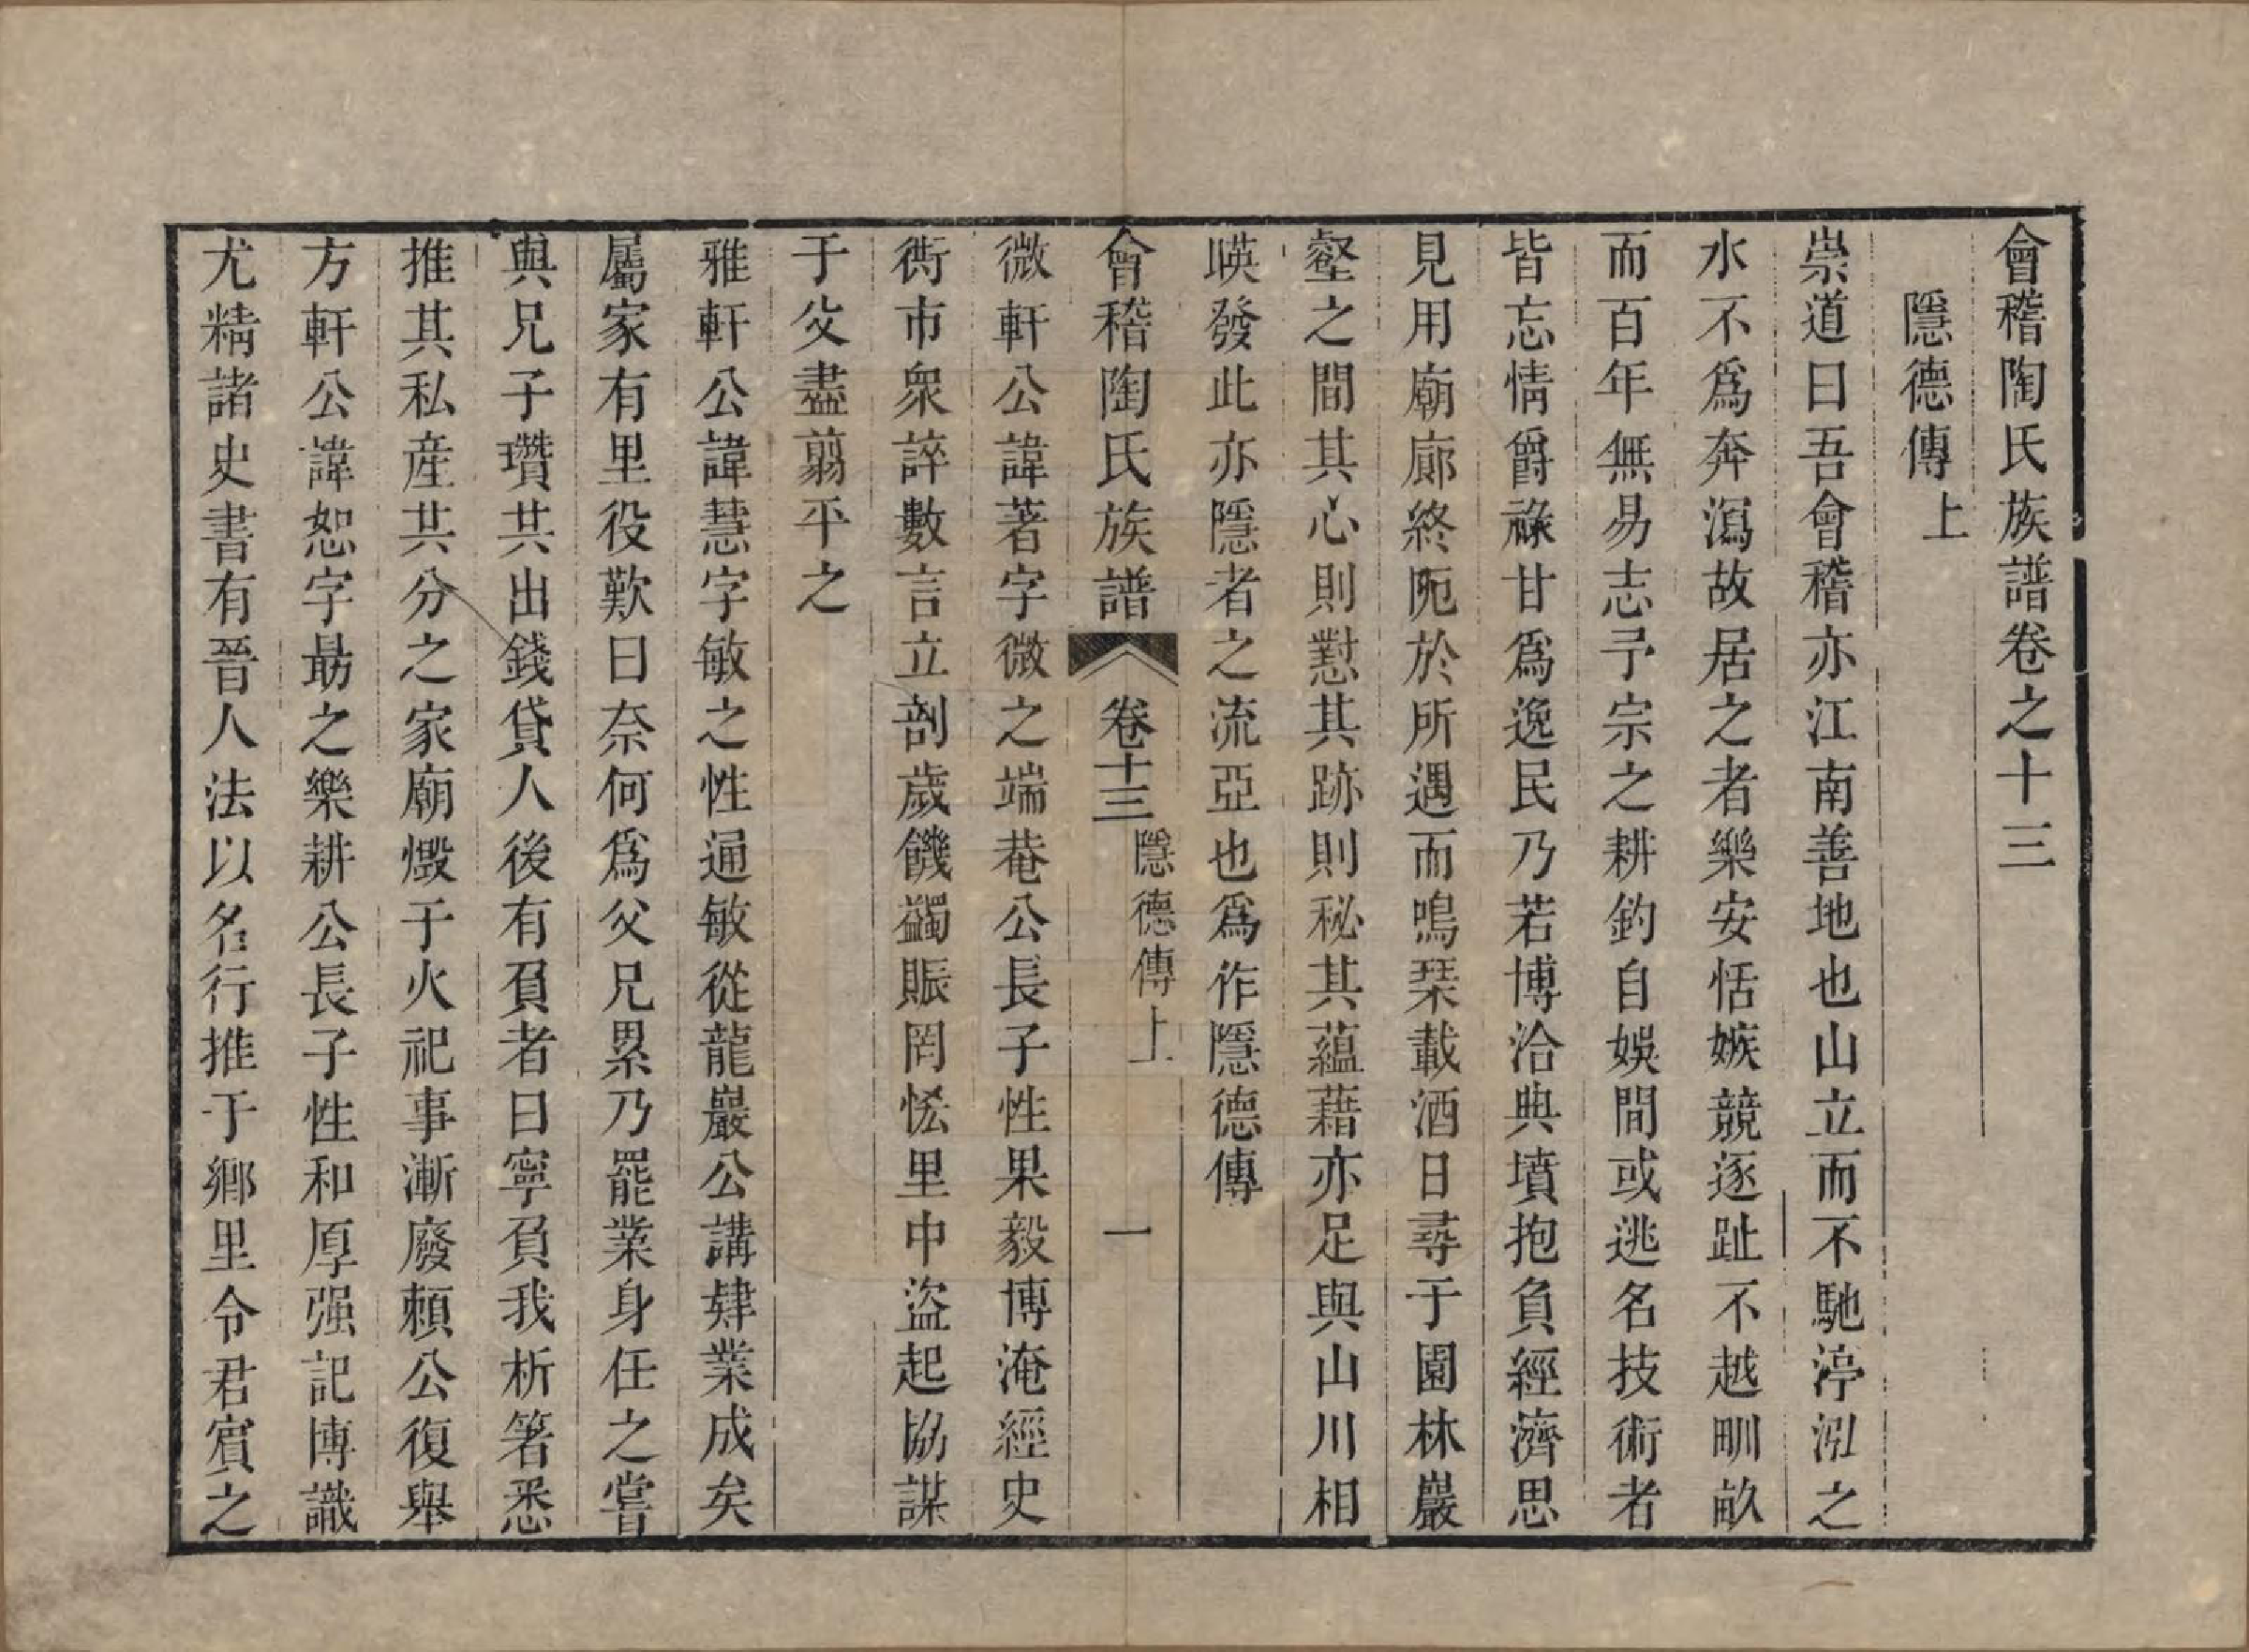 會稽陶氏族譜卷之十三
隱德傳上
崇道曰吾會稽亦江南善地也山立而不馳渟泓之
水不爲奔瀉故居之者樂安恬嫉競逐趾不越甽畝
而百年無易志予宗之耕釣自娛間或逃名技術者
皆忘情爵祿甘爲逸民乃若博洽典墳抱負經濟思
見用廟廊終阨於所遇而鳴琹載酒日尋于園林巖
壑之間其心則懟其跡則秘其蘊藉亦足與山川相
暎發此亦隱者之流亞也爲作隱德傳
會稽陶氏族譜 卷十三 隱德傳上 一
微軒公諱著字微之端菴公長子性果毅博淹經史
衖市衆誶數言立剖歲饑蠲賑罔恡里中盜起協謀
于父盡翦平之
雅軒公諱慧字敏之性通敏從龍巖公講肄業成矣
屬家有里役歎曰奈何爲父兄累乃罷業身任之嘗
與兄子瓚共出錢貸人後有負者曰寧負我析箸悉
推其私産共分之家廟燬于火祀事漸廢頼公復舉
方軒公諱恕字勗之樂耕公長子性和厚强記博識
尤精諸史書有晉人法以名行推于鄉里令君賓之